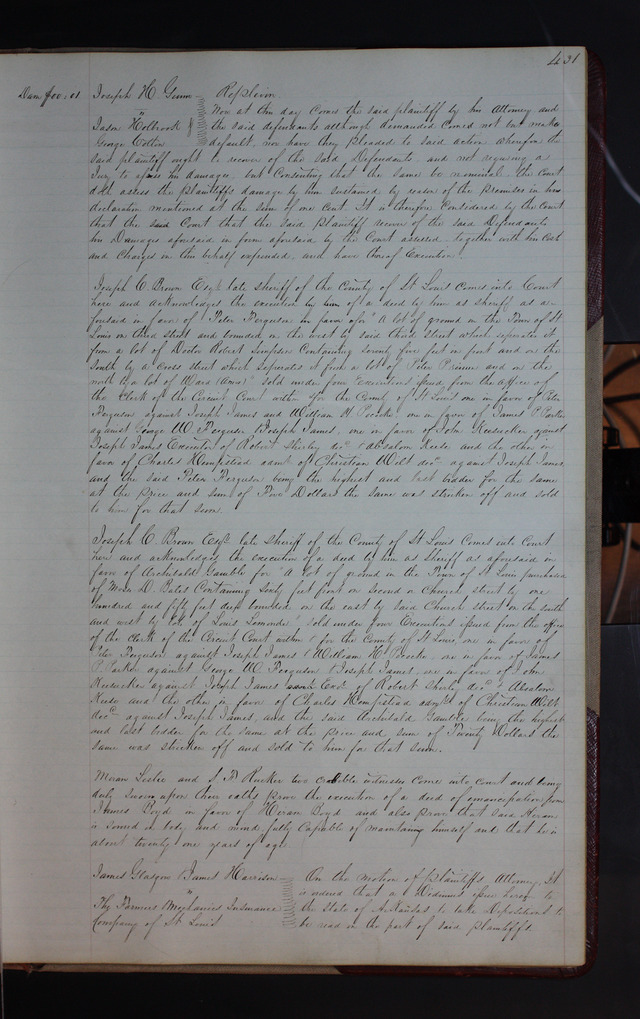 431
Dam $00.01 Joseph H Gunn Replevin
vs Now at this day Comes the said plaintiff by his Attorney and
Jason Holbrook & the said defendants although demanded Comes not but makes
George Collin default, nor have they pleaded to said action wherefore the
said plaintiff ought to recover of the said Defendants and not requiring a
Jury to assess his damages but Consenting that the same be nominal the Court
doth assess the plaintiffs damage by him sustained by reason of the premises in his
declaration mentioned at the sum of one Cent. It is therefore Considered by the Court
that the said Court that the said plaintiff recover of the said Defendants
his Damages aforesaid in form aforesaid by the Court assessed together with his Costs
and Charges in this behalf expended, and have thereof Execution.
Joseph C. Brown Esqr late sheriff of the County of St Louis Comes into Court
here and acknowledges the execution by him of a deed by him as sheriff as afore
said in favor of Peter Ferguson for "A lot of ground in the Town of St
Louis on third street and bounded on the west by said third street which seperates it
from a lot of Doctor Robert Simpson Containing seventy five feet in front and on the
South by a Cross street which seperates it from a lot of Peter Primm and on the
north by a lot of" sold under four Executions issued from the office of
the Clerk of the Circuit Court within & for the County of St Louis one in favor of Peter
Ferguson against Joseph James and William H. one in favor of James P. Parker
against George W. Ferguson & Joseph James, one in favor of John against
Joseph James Executor of Robert decd & Absalom and the other in
favor of Charles Hempstead admr of Christian Wilt decd against Joseph James
and the said Peter Ferguson being the highest and last bidder for the same
at the price and sum of Five Dollars the same was stricken off and sold
to him for that sum.
Joseph C. Brown Esqr late sheriff of the County of St Louis Comes into Court
here and acknowledges the execution of a deed by him as sheriff as aforesaid in
favor of Archibald Gamble for "A lot of ground in the Town of St Louis purchased
of Moses D. Bates Containing Sixty feet front on second or Church street by one
hundred and fifty feet deep bounded on the east by said Church street on the south
and west by lot of Louis" sold under four Executions issued from the office
of the Clerk of the Circuit Court within & for the County of St Louis, one in favor of
Peter Ferguson against Joseph James & William H. one in favor of James
P. Parker against George W. Ferguson & Joseph James, one in favor of John
against Joseph James Exor of Robert decd & Absalom
and the other in favor of Charles Hempstead admr of Christian Wilt
decd against Joseph James, and the said Archibald Gamble being the highest
and last bidder for the same at the price and sum of Twenty Dollars the
same was stricken off and sold to him for that sum.
Moran Leslie and S. B Rucker two credible witnesses Come into court and being
duly sworn upon their oaths prove the execution of a deed of emancipation from
James Boyd in favor of Hiram Boyd and also prove that said Hiram
is sound in body and mind, fully Capable of maintaining himself and that he is
about twenty one years of age.
James Glasgow & James Harrison On the motion of plaintiffs Attorney, It
vs is ordered that a Dedimus issue herein to
The Farmers & Mechanics Insurance the State of Arkansas to take Depositions to
Company of St Louis be read on the part of said plaintiffs